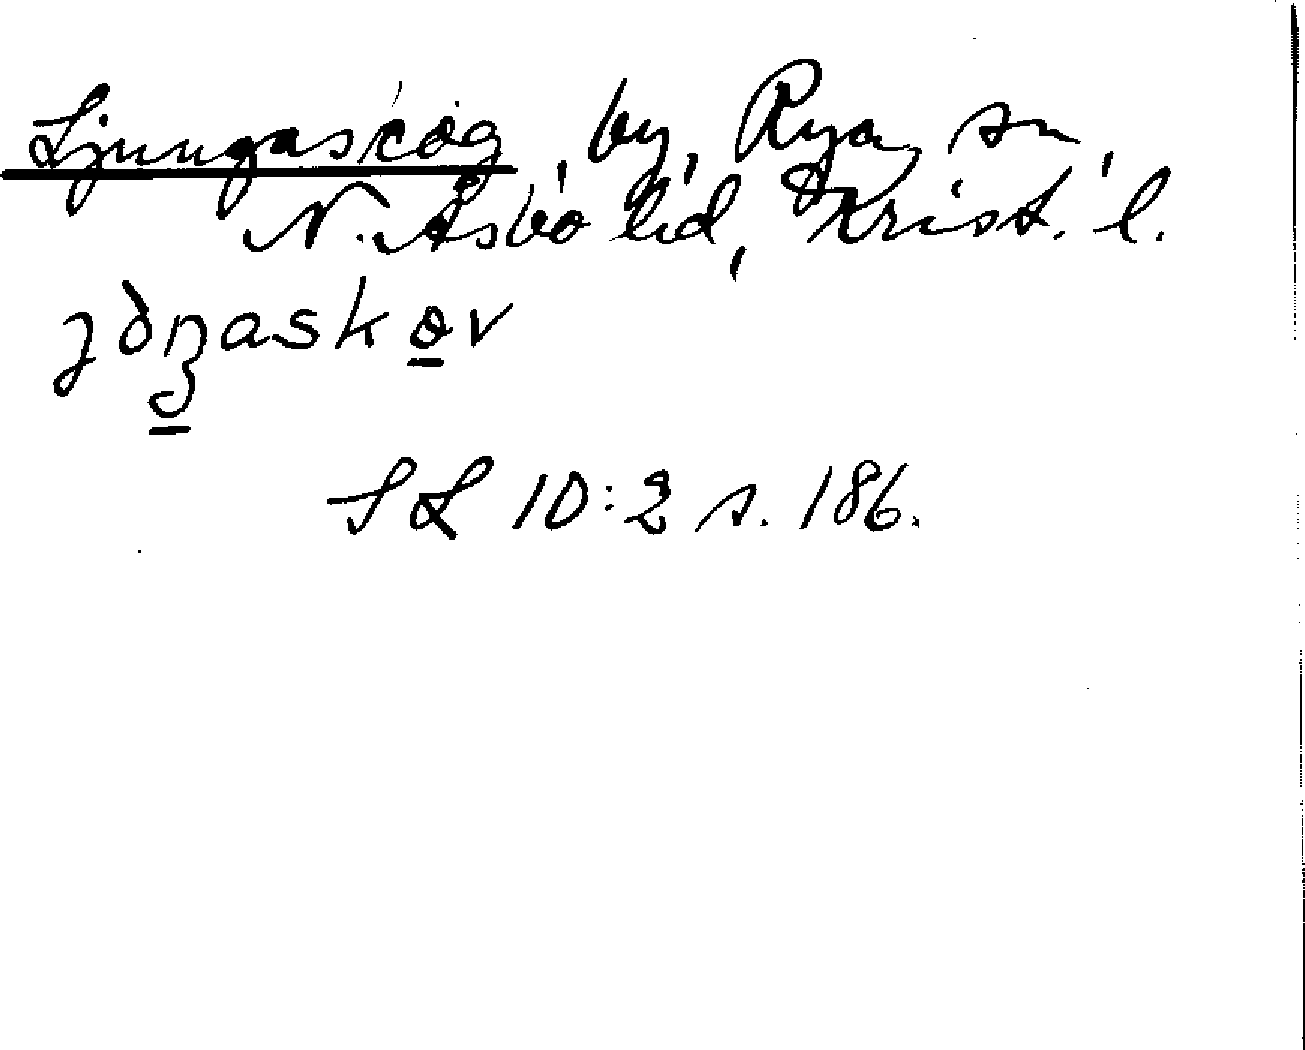 Ljungaskog, by, Rya sn,
N. Åsbo hd, Krist. l.
ȷðŋaskov
SL 10:2 s. 186.